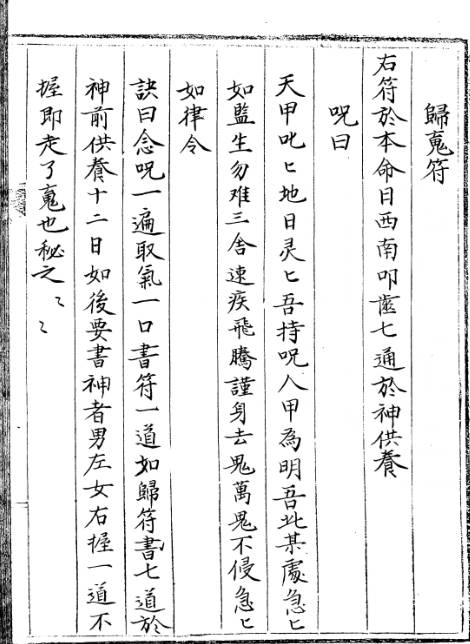 歸䰟符
右符於本命日西南叩齒七通於神供養
咒曰
天甲叱〻地日灵〻吾持咒入甲為明吾此某處急〻
如監生勿难三舍速疾飛騰謹身去鬼萬鬼不侵急〻
如律令
訣曰念咒一遍取氣一口書符一道如歸符書七道於
神前供養十二日如後要書神者男左女右握一道不
握即走了䰟也秘之〻〻